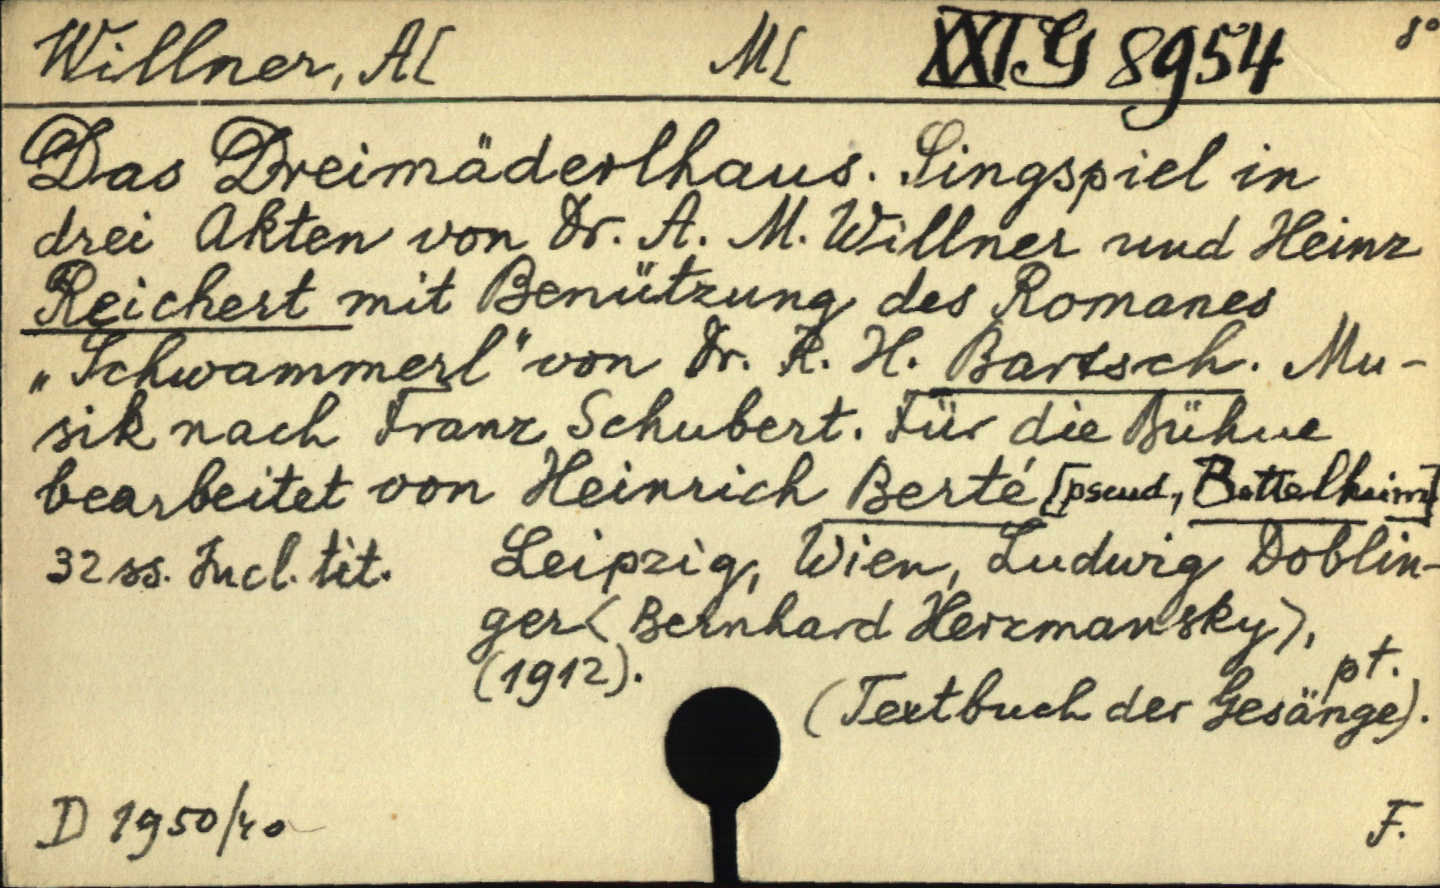 Willner, A[ M[ XXI.G 8954 8°
Das Dreimäderlhaus. Singspiel in
drei Akten von Dr. A. M. Willner und Heinz
Reichert mit Benützung des Romanes
„Schwammerl" von Dr. R. H. Bartsch. Mu-
sik nach Franz Schubert. Für die Bühne
bearbeitet von Heinrich Berté [pseud, Bettelheim]
32 ss. Incl. tit. Leipzig, Wien, Ludwig Doblin-
ger (Bernhard Herzmansky),
(1912). pt.
(Textbuch der Gesänge).
D 1950/40 F.